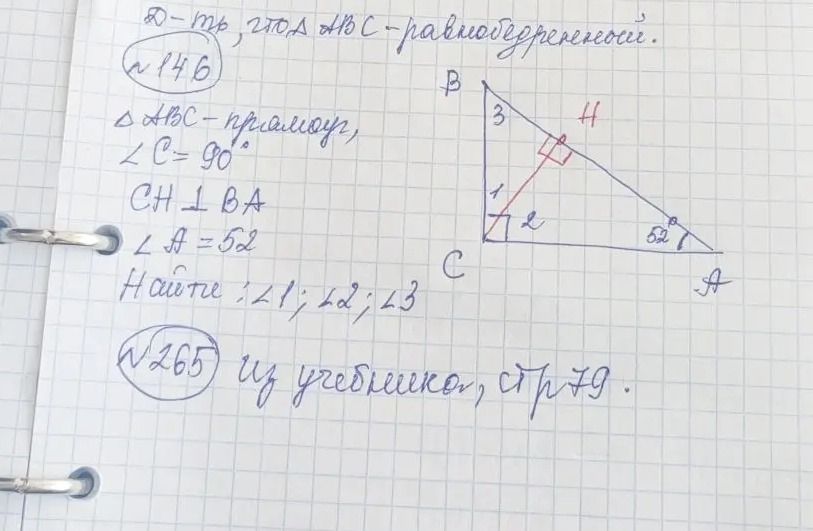 Д-ть, что △ ABC - равнобедренный.
№146
△ ABC - прямоуг,
∠ C = 90°
CH ⊥ BA
∠ A = 52
Найти: ∠1; ∠2; ∠3
B
3
H
1
2
52
C
A
№265 из учебника, стр 79.